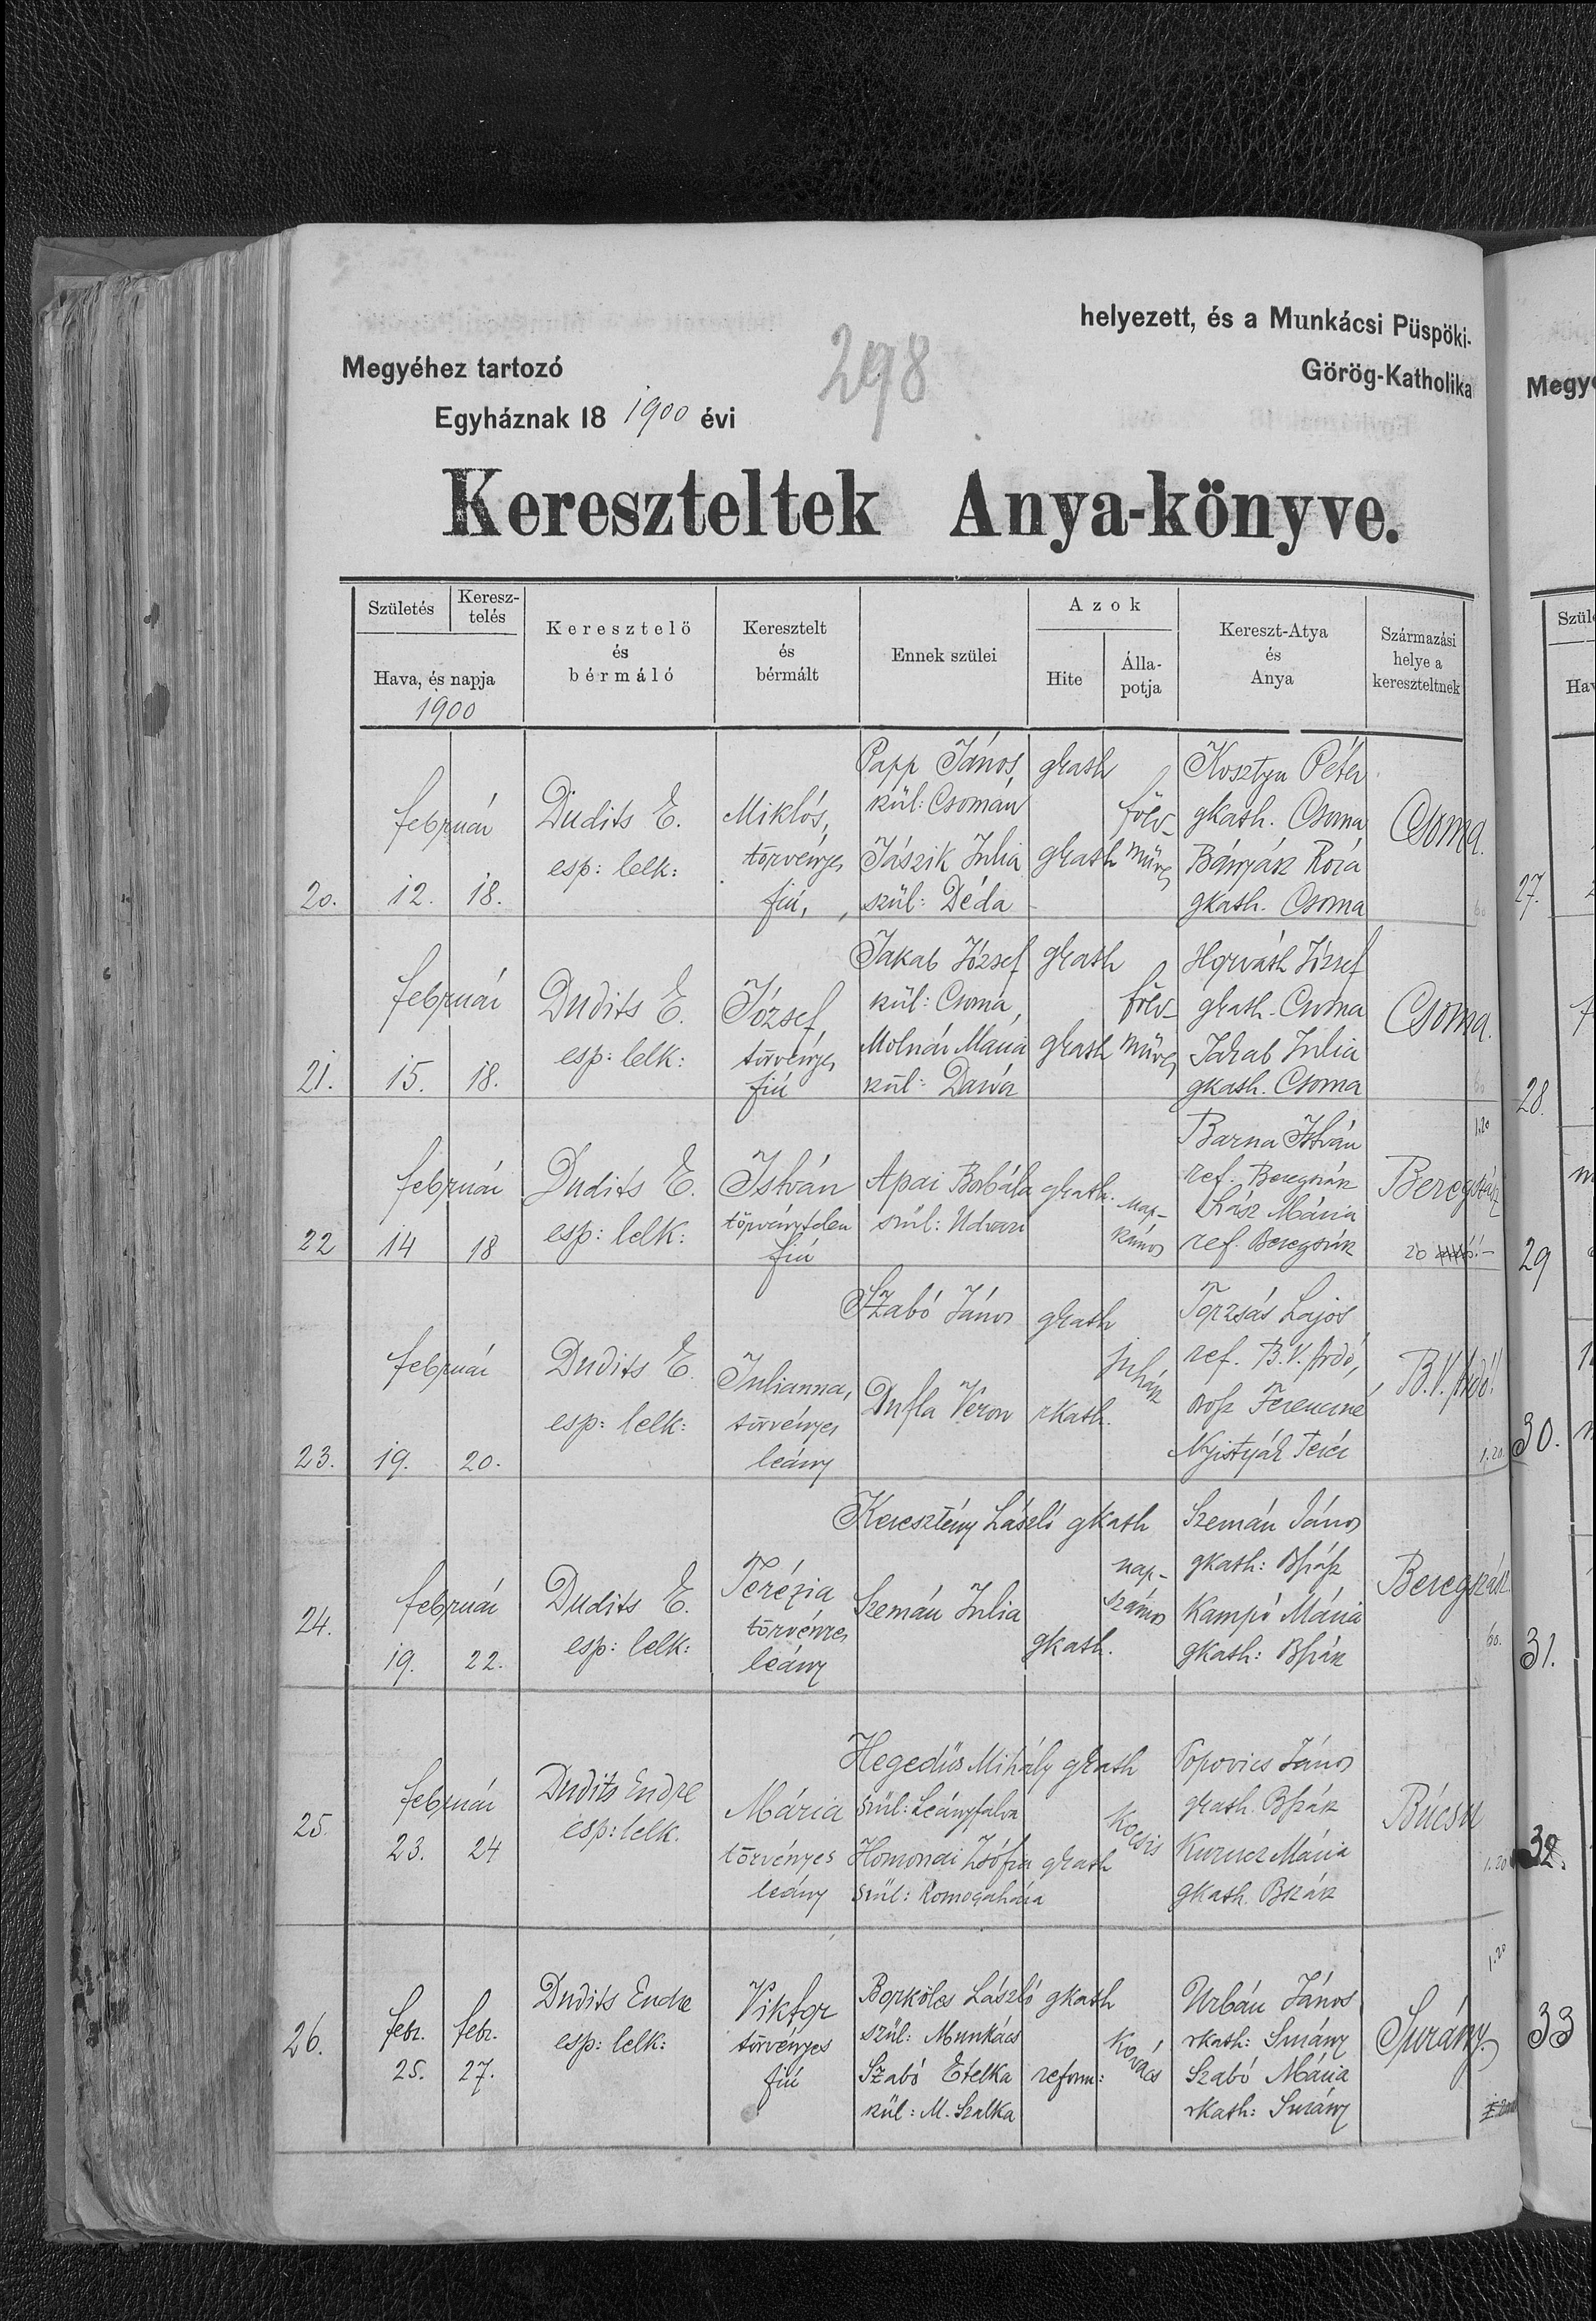 helyezett, és a Munkácsi Püspöki-
Megyéhez tartozó
298
Görög-Katholika
Egyháznak 18 1900 évi
Kereszteltek Anya-könyve.
Születés
Keresz-
telés
Hava, és napja
1900
Keresztelő
és
bérmáló
Keresztelt
és
bérmált
Ennek szülei
Azok
Hite
Álla-
potja
Kereszt-Atya
és
Anya
Származási
helye a
kereszteltnek
20.
február
12. 18.
Dudits E.
esp: lelk:
Miklós,
törvényes
fiú,
Papp János, gkath
szül: Csomán
Jászik Julia gkath
szül: Déda
földműves
Kosztyu Péter
gkath. Csoma
Bányász Roza
gkath. Csoma
Csoma.
60
21.
február
15. 18.
Dudits E.
esp: lelk:
József,
törvényes
fiú
Jakab József gkath
szül: Csoma,
Molnár Mária gkath
szül: Darócz
földműves
Horváth József
gkath. Csoma
Jakab Julia
gkath. Csoma
Csoma.
60
22
február
14 18
Dudits E.
esp: lelk:
István
törvénytelen
fiú
Apai Borbála gkath.
szül: Udvari
nap-
számos
Barna István
ref. Beregszász
Mária
ref. Beregszász
Beregszász
1.20
20
23.
február
19. 20.
Dudits E.
esp: lelk:
Julianna,
törvényes
leány
Szabó János gkath
Dufla Veron rkath.
juhász
Torzsás Lajos
ref. B.V. Ardó,
Orosz Ferencné
Nyistyák Teréz
B.V. Ardó!
1.20
24.
február
19. 22.
Dudits E.
esp: lelk:
Terézia
törvényes
leány
Keresztény László gkath
Szemán Julia
gkath.
nap-
számos
Szemán János
gkath: Bszász
Kampó Mária
gkath: Bszász
Beregszász
60.
25.
február
23. 24
Dudits Endre
esp: lelk.
Mária
törvényes
leány
Hegedüs Mihály gkath
szül: Leányfalva
Homonai Zsófia gkath
szül: Komogaháza
kocsis
Popovics János
gkath. Bszász
Kurucz Mária
gkath. Bszász
Búcsu
1.20
26.
febr. febr.
25. 27.
Dudits Endre
esp: lelk:
Viktor
törvényes
fiú
Borkóles László gkath
szül: Munkács
Szabó Etelka reform:
szül: M. Szalka
kovács
Urbán János
rkath: Surány
Szabó Mária
rkath: Surány
Surány.
1.20
Megye
Szüle
Hav
27.
28.
29
30.
31.
32.
33